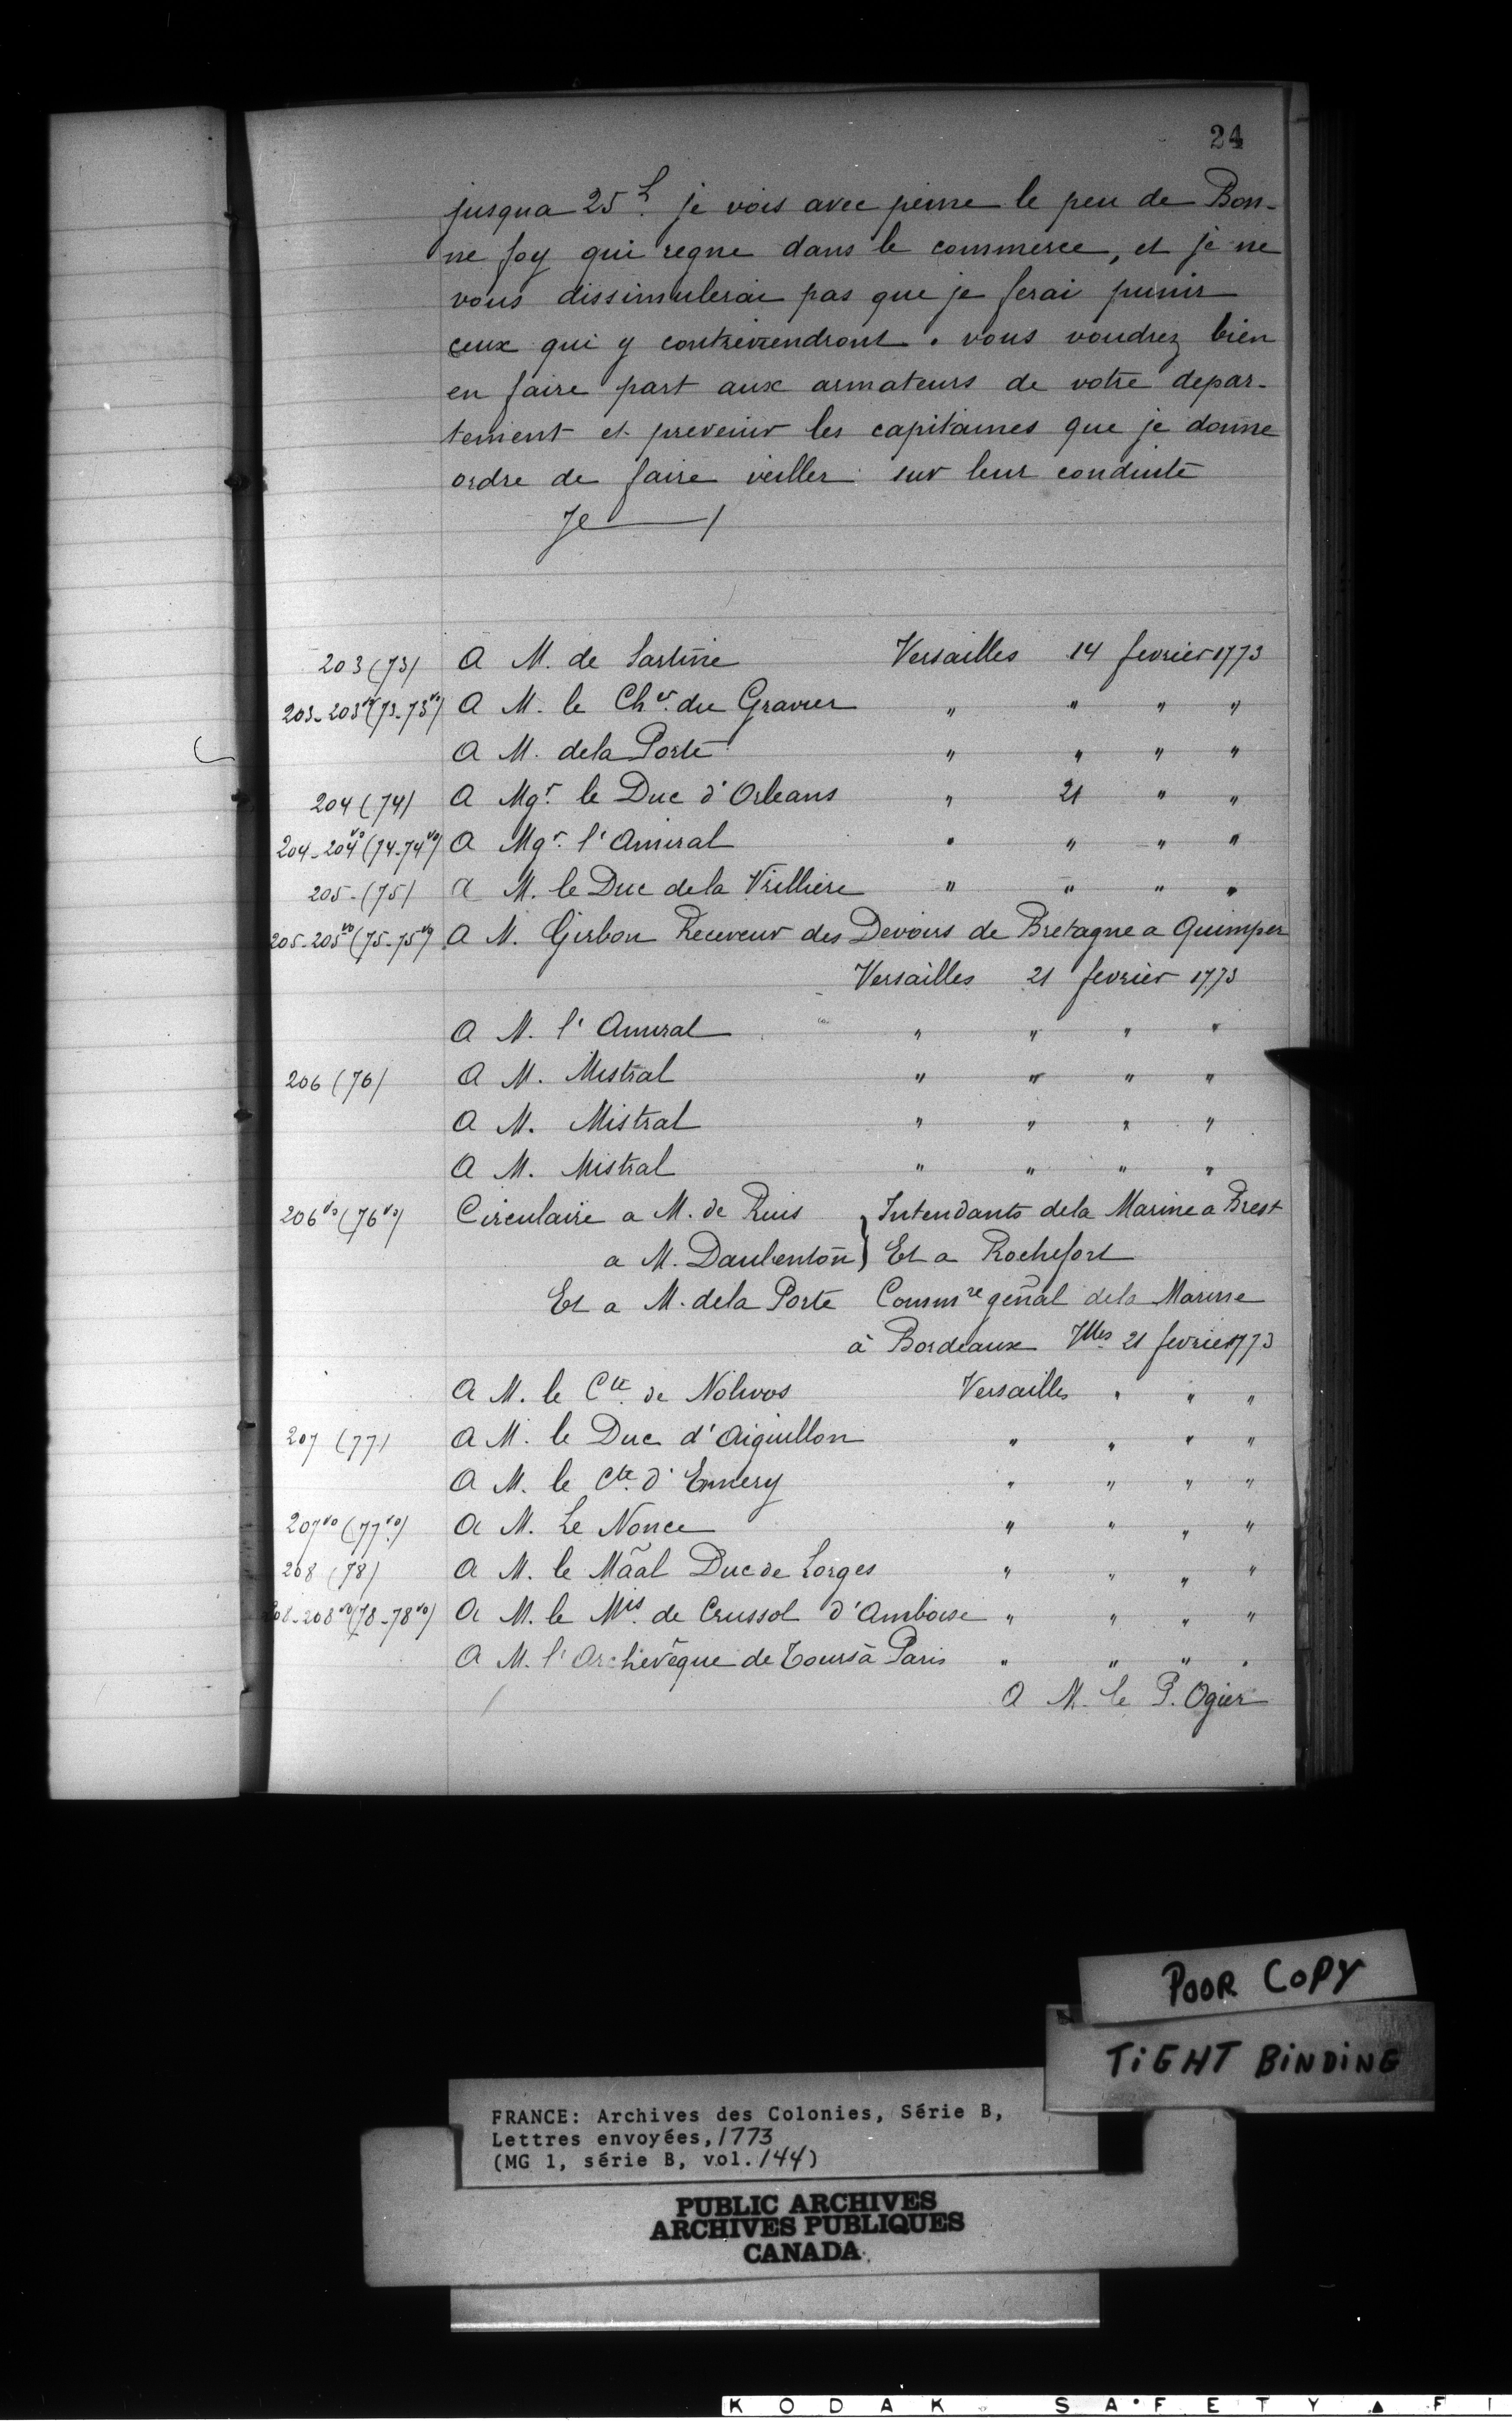 24
jusqua 25ᴸ. je vois avec peine le peu de Bon-
ne foy qui regne dans le commerce, et je ne
vous dissimulerai pas que je ferai punir
ceux qui y contreviendront. vous voudrez bien
en faire part aux armateurs de votre depar-
tement et prevenir les capitaines que je donne
ordre de faire veiller sur leur conduite
Je ———/
203 (73) A M. de Sartine Versailles 14 fevrier 1773
203-203vo (73-73vo) A M. le Cher. du Gravier " " " "
A M. dela Porte " " " "
204 (74) A Mgr. le Duc d'Orleans " 21 " "
204-204vo (74-74vo) A Mgr. l'Amiral " " " "
205-(75) a M. le Duc dela Vrilliere " " " "
205-205vo (75-75vo) A M. Girbon Receveur des Devoirs de Bretagne a Quimper
Versailles 21 fevrier 1773
A M. l'Amiral " " " "
206 (76) A M. Mistral " " " "
A M. Mistral " " " "
A M. Mistral " " " "
206vo (76vo) Circulaire a M. de Ruis } Intendants dela Marine a Brest
a M. Daubenton } Et a Rochefort
Et a M. dela Porte Commre genal dela Marine
à Bordeaux Vlles 21 fevrier 1773
A M. le Cte. de Nolivos Versailles " " "
207 (77) A M. le Duc d'Aiguillon " " " "
A M. le Cte. d'Ennery " " " "
207vo (77vo) A M. Le Nonce " " " "
208 (78) A M. le Mãal Duc de Lorges " " " "
208-208vo (78-78vo) A M. le Mis. de Crussol d'Amboise " " " "
A M. l'Archevêque de Tours à Paris " " " "
A M. le P. Ogier
POOR COPY
TIGHT BINDING
FRANCE: Archives des Colonies, Série B,
Lettres envoyées, 1773
(MG 1, série B, vol. 144)
PUBLIC ARCHIVES
ARCHIVES PUBLIQUES
CANADA
KODAK SAFETY FI